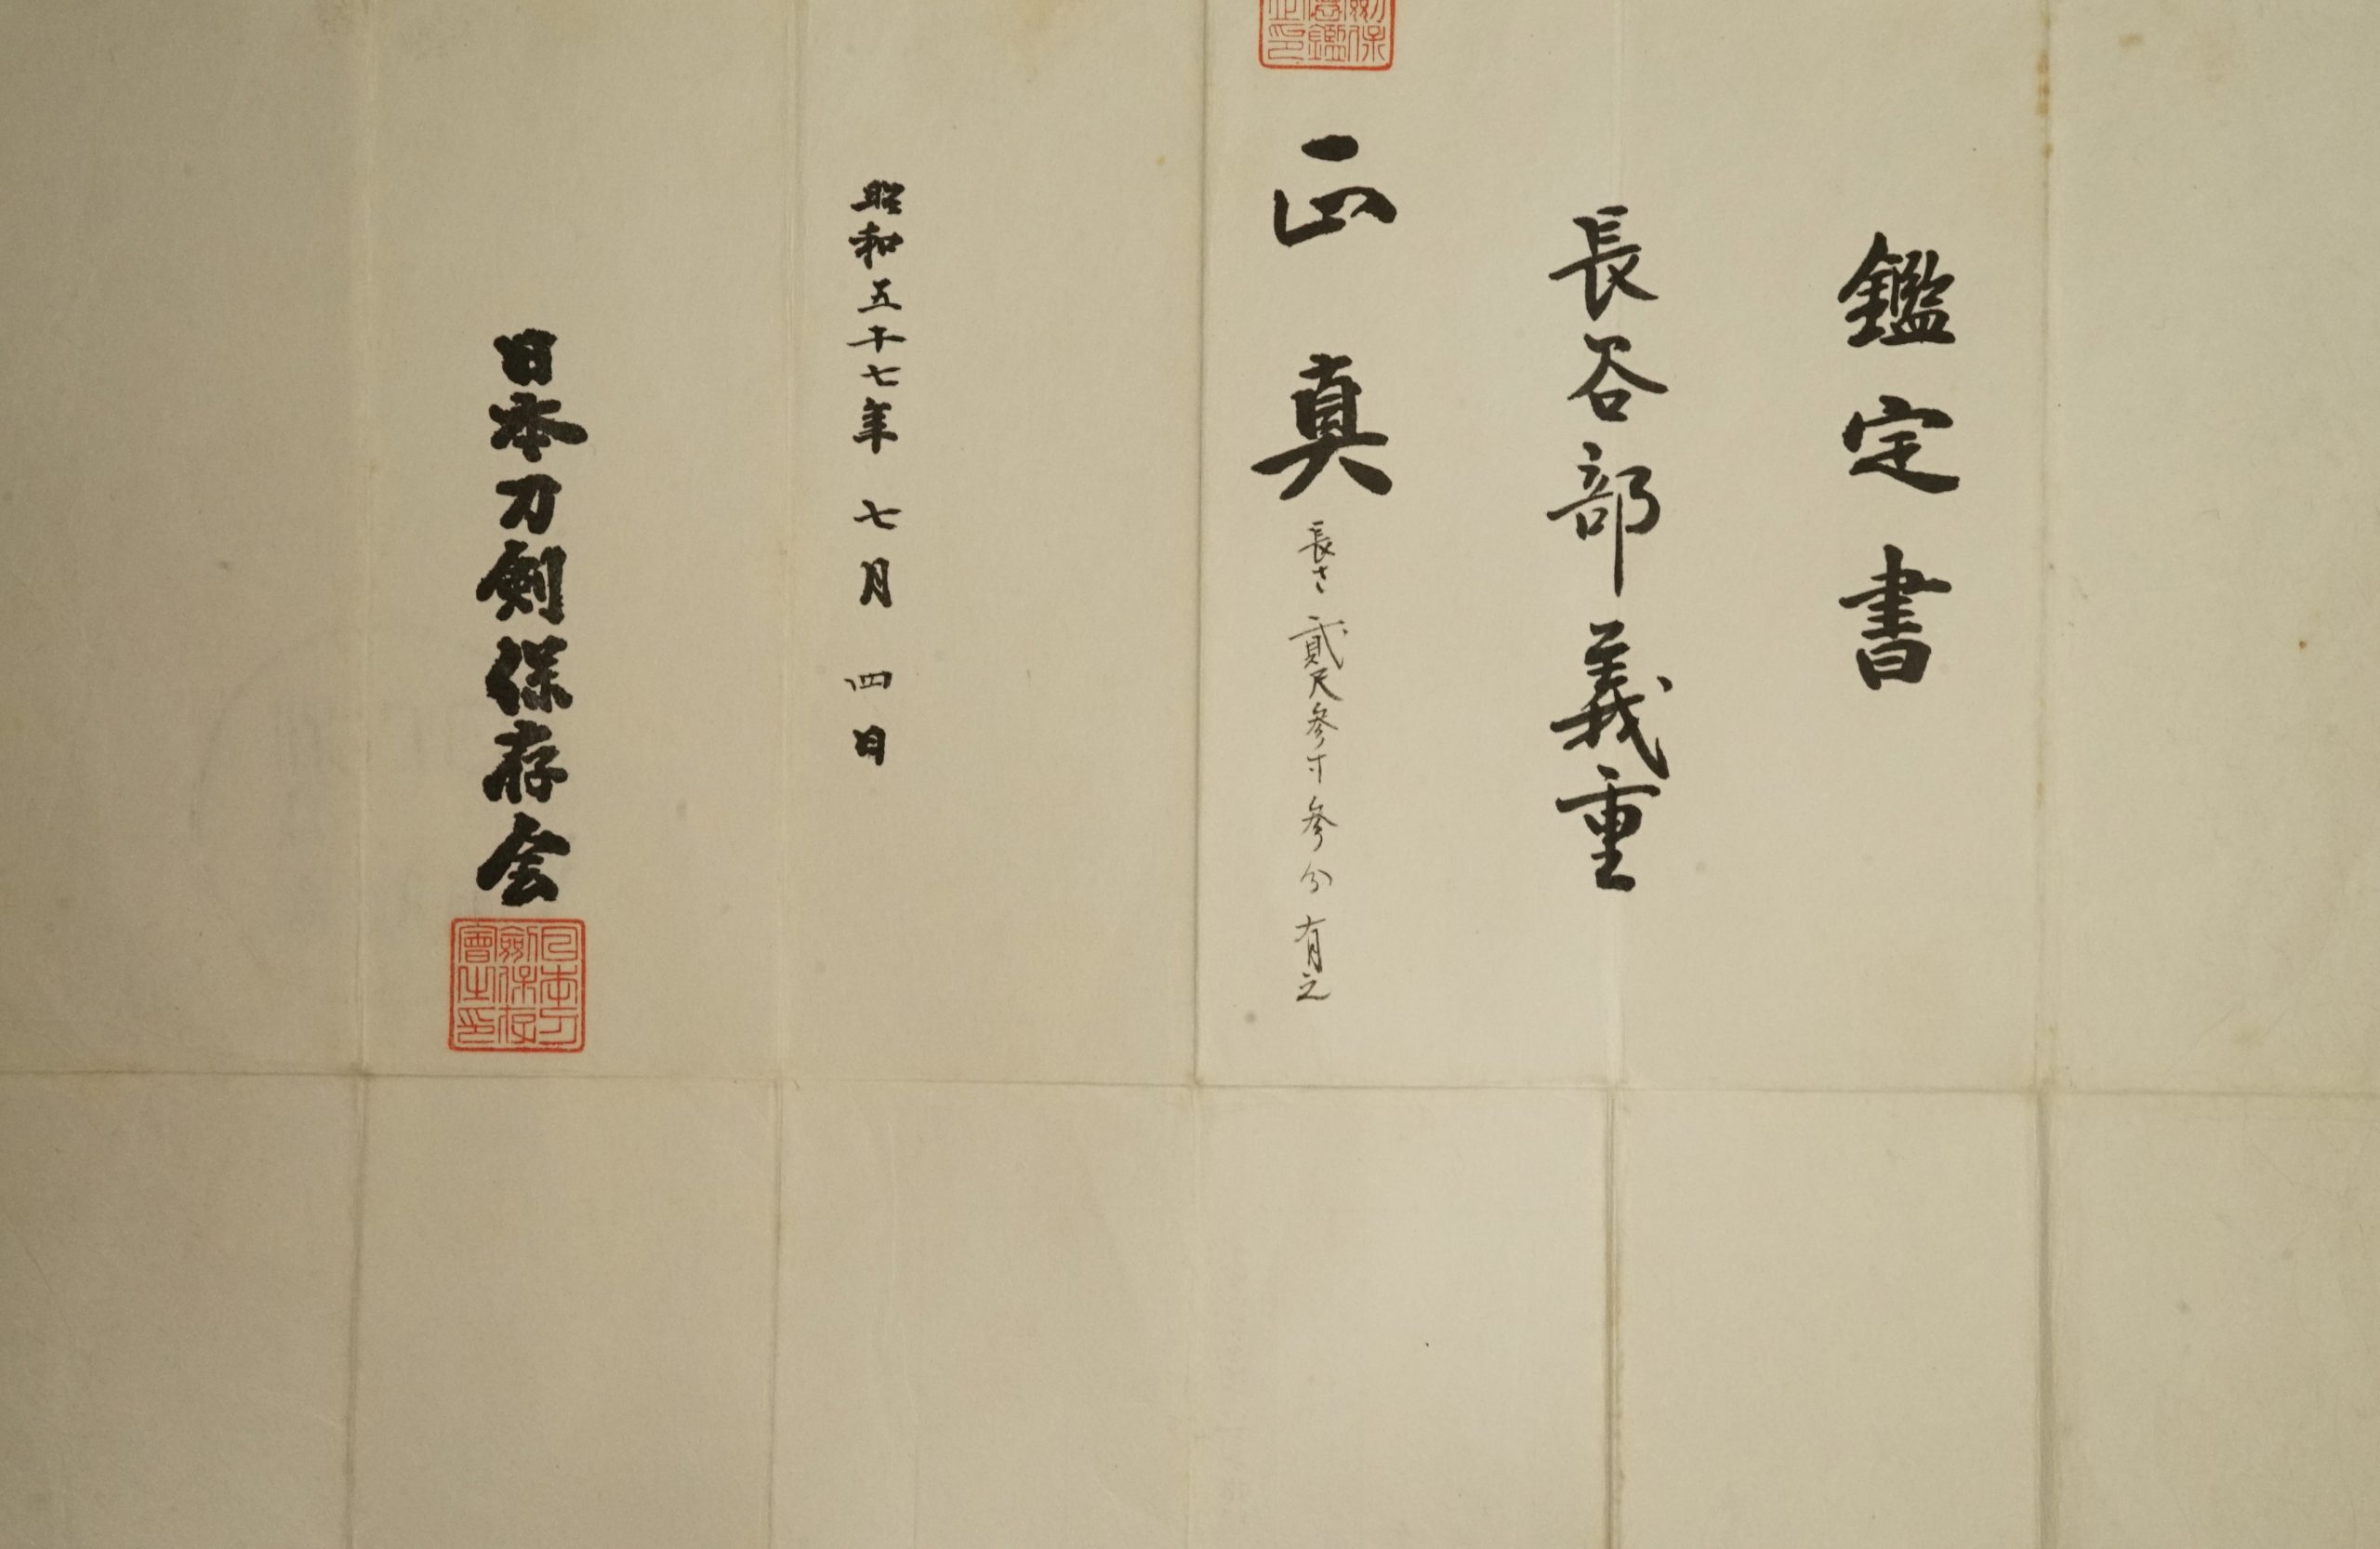 鑑定書
長谷部義重
正真 長さ貳尺参寸参分有之
昭和五十七年 七月 四日
日本刀剣保存会
日本刀
劍保存
會之印